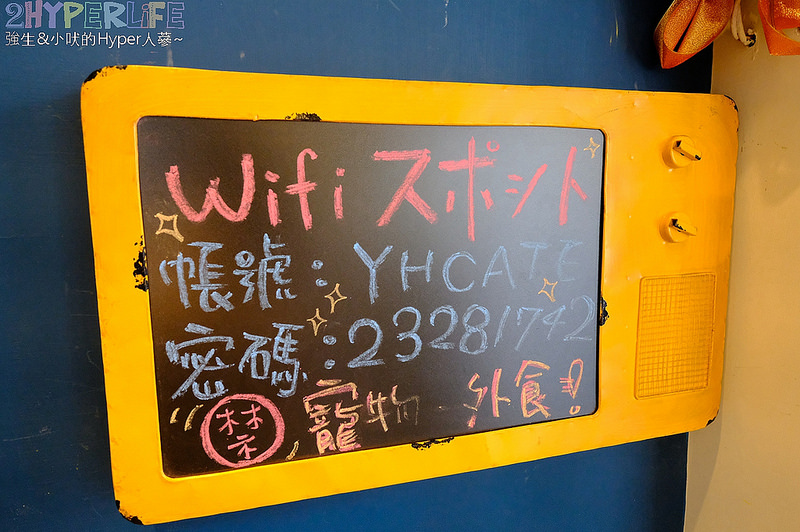 2HYPERLIFE
強生&小吠的Hyper人蔘~
Wifi スポット
帳號:YHCATE
密碼:23281742
禁 寵物、外食!